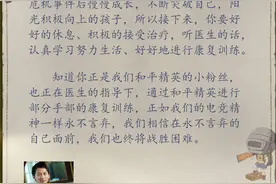 危机事件后慢慢成长，不断突破自己，阳
光积极向上的孩子，所以接下来，你要好
好的休息、积极的接受治疗，听医生的话，
认真学习努力生活、好好地进行康复训练。
知道你正是我们和平精英的小粉丝，
也正在医生的指导下，通过和平精英进行
部分手部的康复训练，正如我们的电竞精
神一样永不言弃，我们相信在永不言弃的
自己面前，我们也终将战胜困难。